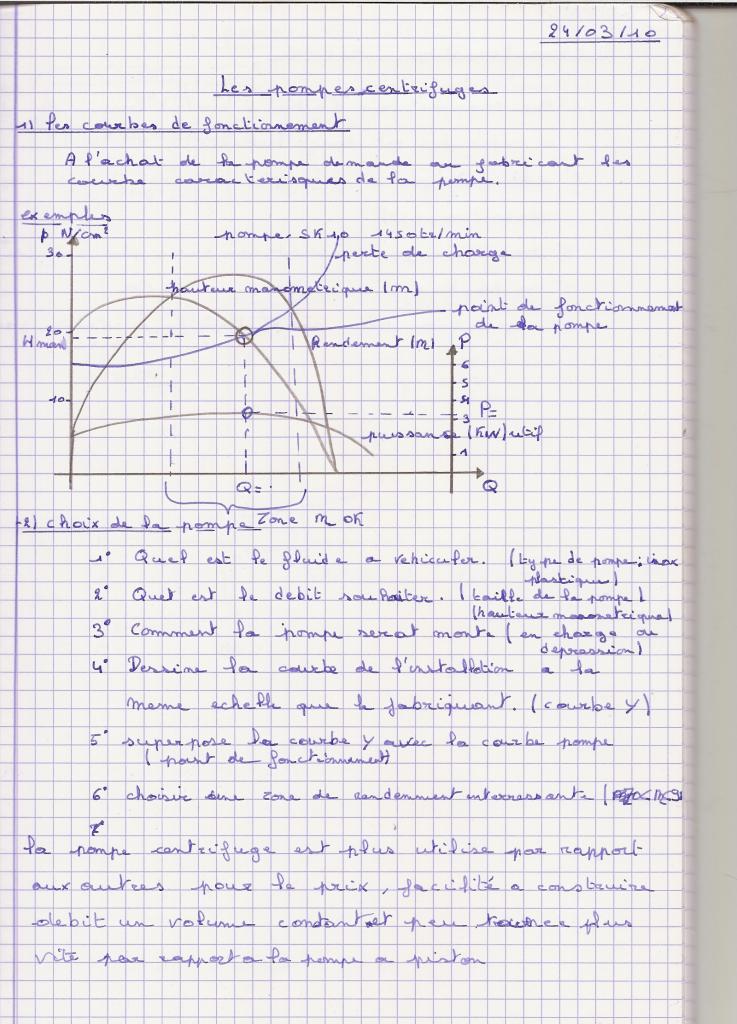 24/03/10
Les pompes centrifuges
1) les courbes de fonctionnement
A l'achat de la pompe demande au fabricant les
courbe caracterisques de la pompe.
exemples
p N/cm²
pompe SK 1,0 1450tr/min
30
perte de charge
hauteur manometrique (m)
point de fonctionnemat
de la pompe
20
H man
Rendement (m)
P
6
5
4
3
1
10
P=
puissance (KW) util
Q=
Q
2) choix de la pompe Zone m OK
1° Quel est le fluide a vehiculer. (type de pompe: inox
plastique)
2° Quel est le debit souhaiter. (taille de la pompe)
(hauteur manometrique)
3° Comment la pompe serat monte (en charge ou
depression)
4° Dessine la courbe de l'installation a la
meme echelle que le fabriquant. (courbe Y)
5° superpose la courbe Y avec la courbe pompe
(point de fonctionnement)
6° choisir une zone de rendemment interressante
7°
la pompe centrifuge est plus utilise par rapport
aux autres pour le prix, facilité a construire
debit un volume constant et peu tournee plus
vite par rapport a la pompe a piston